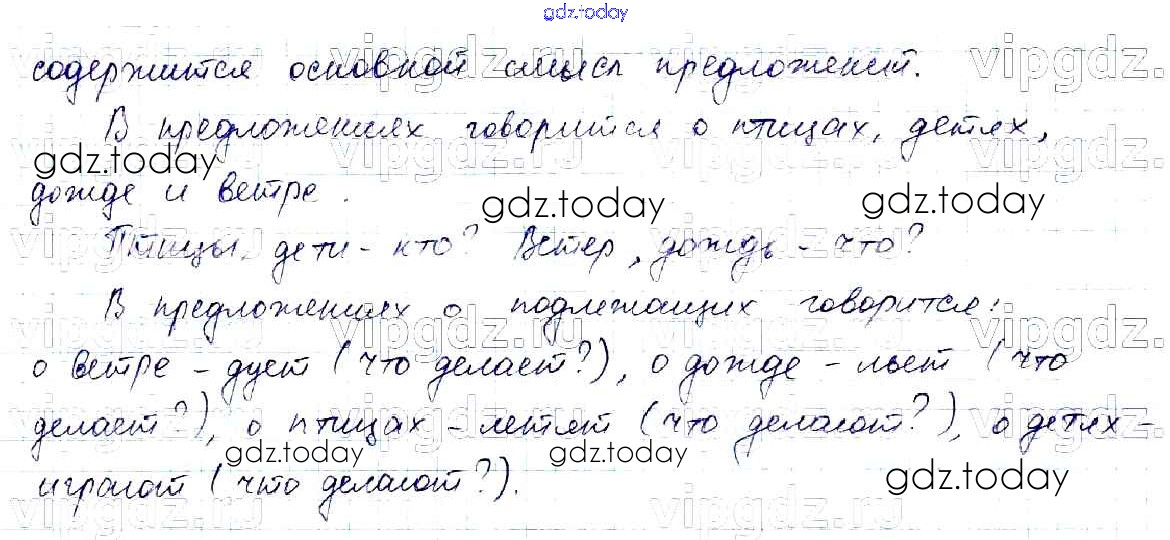 gdz.today
содержится основной смысл предложений.
В предложениях говорится о птицах, детях,
дожде и ветре.
Птицы, дети - кто? Ветер, дождь - что?
В предложениях о подлежащих говорится:
о ветре - дует (что делает?), о дожде - льет (что
делает?), о птицах - летят (что делают?), о детях -
играют (что делают?).